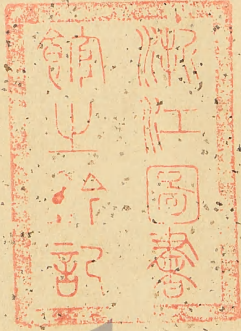 浙江圖書
館之钤記